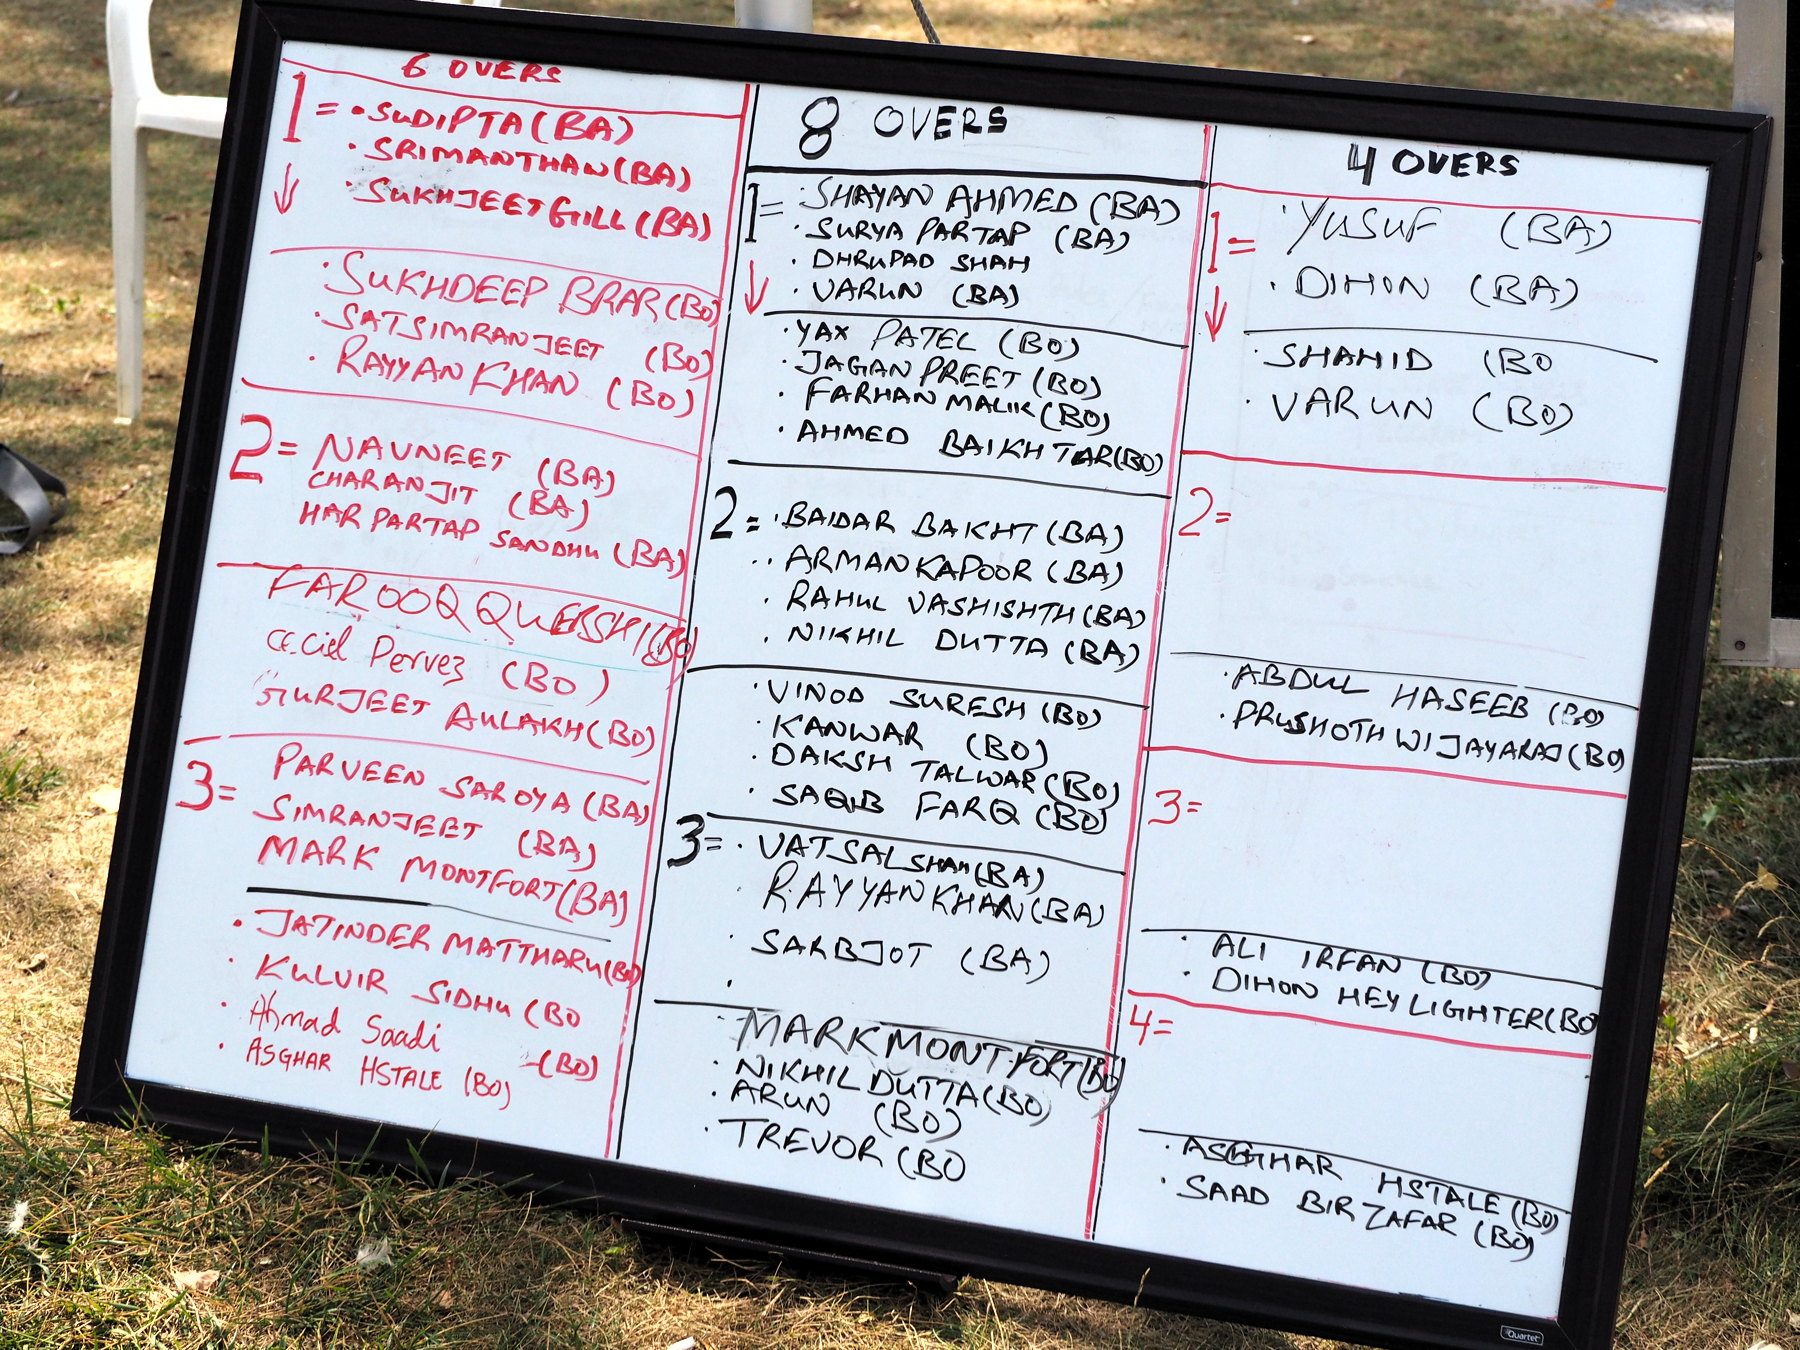 6 OVERS
1 = · SUDIPTA (BA)
· SRIMANTHAN (BA)
· SUKHJEET GILL (BA)
· SUKHDEEP BRAR (BO)
· SATSIMRANJEET (BO)
· RAYYAN KHAN (BO)
2 = NAVNEET (BA)
CHARANJIT (BA)
HARPARTAP SANDHU (BA)
FAROOQ QUERSHI (BO)
Ceciel Pervez (BO)
GURJEET AULAKH (BO)
3 = PARVEEN SAROYA (BA)
SIMRANJEET (BA)
MARK MONTFORT (BA)
· JATINDER MATTHARU (BO)
· KULVIR SIDHU (BO
· Ahmad Saadi -(BO)
· ASGHAR HSTALE (BO)
8 OVERS
1 = · SHAYAN AHMED (BA)
· SURYA PARTAP (BA)
· DHRUPAD SHAH
· VARUN (BA)
· YAX PATEL (BO)
· JAGANPREET (BO)
· FARHAN MALIK (BO)
· AHMED BAIKHTAR (BO)
2 = · BAIDAR BAKHT (BA)
· ARMAN KAPOOR (BA)
· RAHUL VASHISHTH (BA)
· NIKHIL DUTTA (BA)
· VINOD SURESH (BO)
· KANWAR (BO)
· DAKSH TALWAR (BO)
· SAQIB FARQ (BO)
3 = · VATSAL SHAH (BA)
· RAYYAN KHAN (BA)
· SARBJOT (BA)
·
MARK MONTFORT (BO)
· NIKHIL DUTTA (BO)
· ARUN (BO)
· TREVOR (BO
4 OVERS
1 = · YUSUF (BA)
· DIHON (BA)
· SHAHID (BO
· VARUN (BO)
2 =
· ABDUL HASEEB (BO)
· PRUSHOTH WIJAYARAJ (BO)
3 =
· ALI IRFAN (BO)
· DIHON HEYLIGHTER (BO)
4 =
· ASGHAR HSTALE (BO)
· SAAD BIR ZAFAR (BO)
Quartet